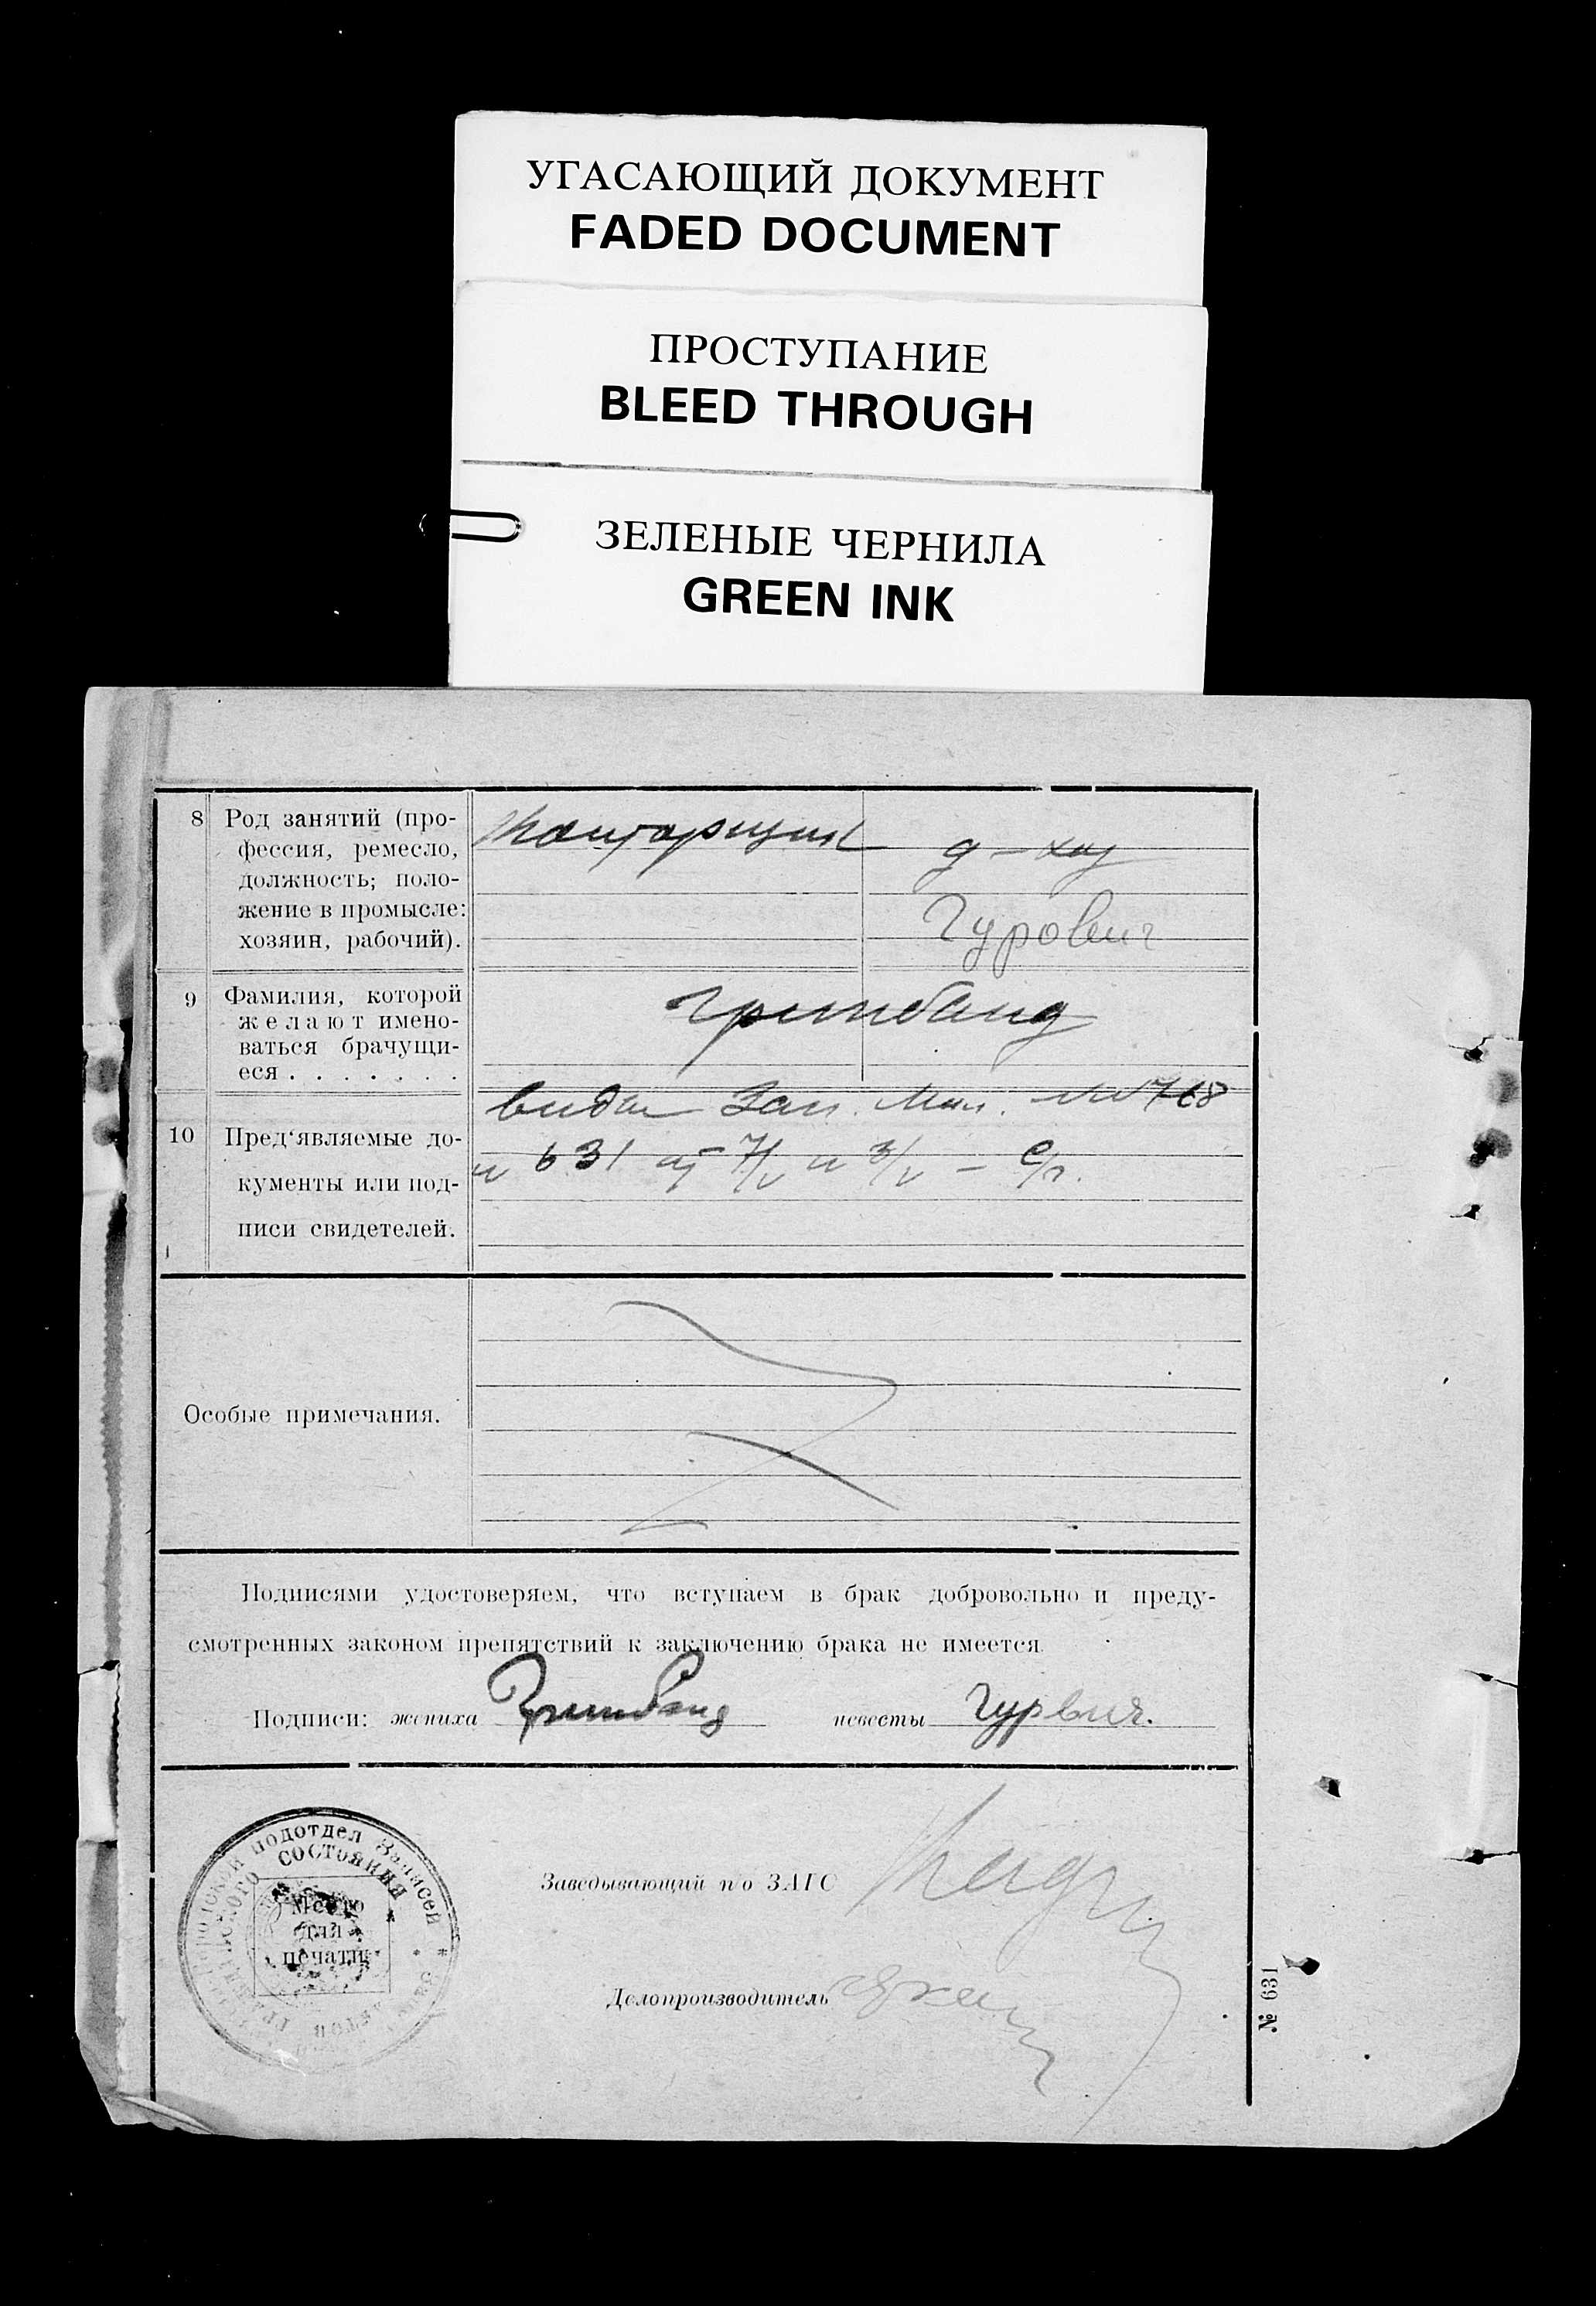 УГАСАЮЩИЙ ДОКУМЕНТ
FADED DOCUMENT
ПРОСТУПАНИЕ
BLEED THROUGH
ЗЕЛЕНЫЕ ЧЕРНИЛА
GREEN INK
8 Род занятий (про-
фессия, ремесло,
должность; поло-
жение в промысле:
хозяин, рабочий).
д-хоз
Гурович
9 Фамилия, которой
желают имено-
ваться брачущи-
еся . . . . . . .
Гринбанд
10 Пред‘являемые до-
кументы или под-
писи свидетелей.
виды Зап. Мил. №№ 768
и 631 от 7/V и 3/V - с/г.
Особые примечания.
Подписями удостоверяем, что вступаем в брак добровольно и преду-
смотренных законом препятствий к заключению брака не имеется.
Подписи: жениха Гринбанд невесты Гурвич.
подотдел Записей
состояния
Место
для
печати
Заведывающий п/о ЗАГС
Делопроизводитель
№ 631